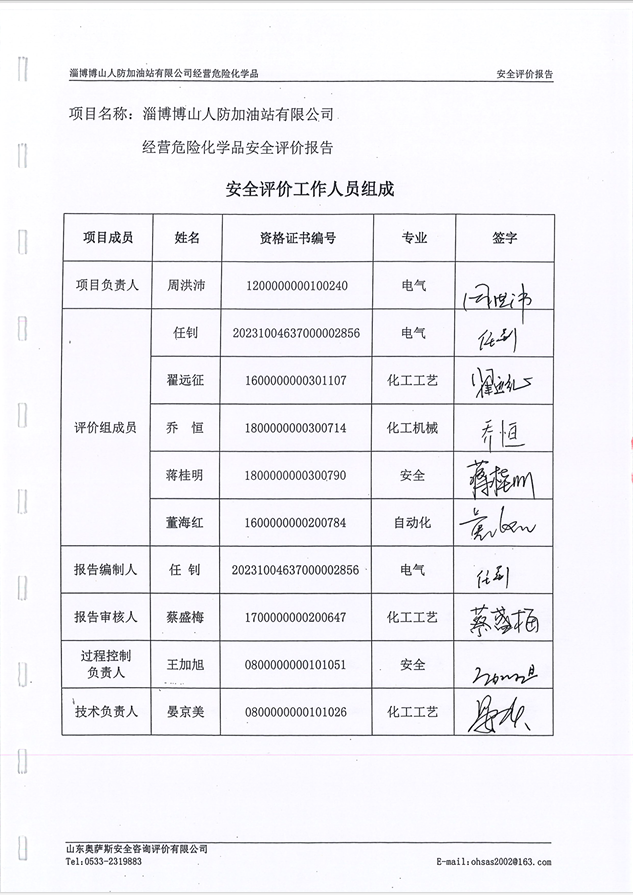 淄博博山人防加油站有限公司经营危险化学品 安全评价报告
项目名称：淄博博山人防加油站有限公司
经营危险化学品安全评价报告
安全评价工作人员组成
项目成员 姓名 资格证书编号 专业 签字
项目负责人 周洪沛 1200000000100240 电气 周洪沛
评价组成员 任钊 20231004637000002856 电气 任钊
翟远征 1600000000301107 化工工艺 翟远征
乔 恒 1800000000300714 化工机械 乔恒
蒋桂明 1800000000300790 安全 蒋桂明
董海红 1600000000200784 自动化
报告编制人 任 钊 20231004637000002856 电气 任钊
报告审核人 蔡盛梅 1700000000200647 化工工艺 蔡盛梅
过程控制
负责人 王加旭 0800000000101051 安全
技术负责人 晏京美 0800000000101026 化工工艺
山东奥萨斯安全咨询评价有限公司
Tel:0533-2319883 E-mail:ohsas2002@163.com